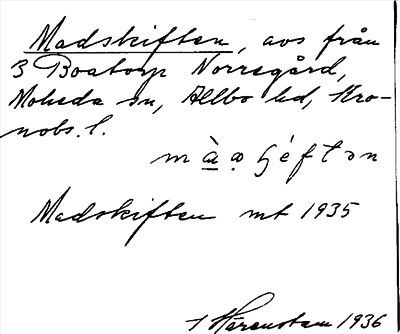 Madskiften, avs från
3 Boatorp Norregård,
Moheda sn, Allbo hd, Kro-
nobs. l.
Madskiften mt 1935
1936